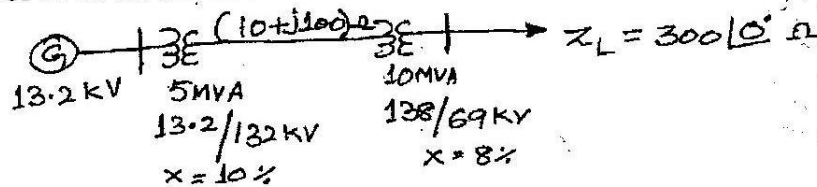 (10+j100)Ω
Z_L = 300∠0° Ω
G
13.2 KV
5MVA
13.2/132 KV
x = 10%
10MVA
138/69 KV
x = 8%